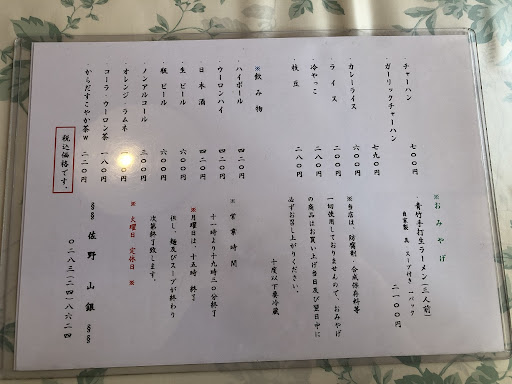 ・チャーハン 七〇〇円
・ガーリックチャーハン 七九〇円
・カレーライス 六〇〇円
・ライス 二〇〇円
・冷やっこ 二八〇円
・枝豆 二八〇円
※飲み物
・ハイボール 四二〇円
・ウーロンハイ 四二〇円
・日本酒 四二〇円
・生ビール 六〇〇円
・瓶ビール 六〇〇円
・ノンアルコール 三〇〇円
・オレンジ・ラムネ
・コーラ・ウーロン茶 一八〇円
・からだすこやか茶W 二二〇円
税込価格です。
※おみやげ
・青竹手打生ラーメン(三人前)
自家製 具 スープ付き 一パック
二一〇〇円
※当店は、防腐剤・合成保存料等
一切使用しておりませんので、おみやげ
の商品はお買い上げ当日及び翌日中に
必ずお召し上がりください。
十度以下要冷蔵
※営業時間
十一時より十九時三〇分終了
※月曜日は、十五時 終了
但し、麺及びスープが終わり
次第終了致します。
※火曜日 定休日※
§§ 佐野 山銀 §§
〇二八三(二四)八六二四